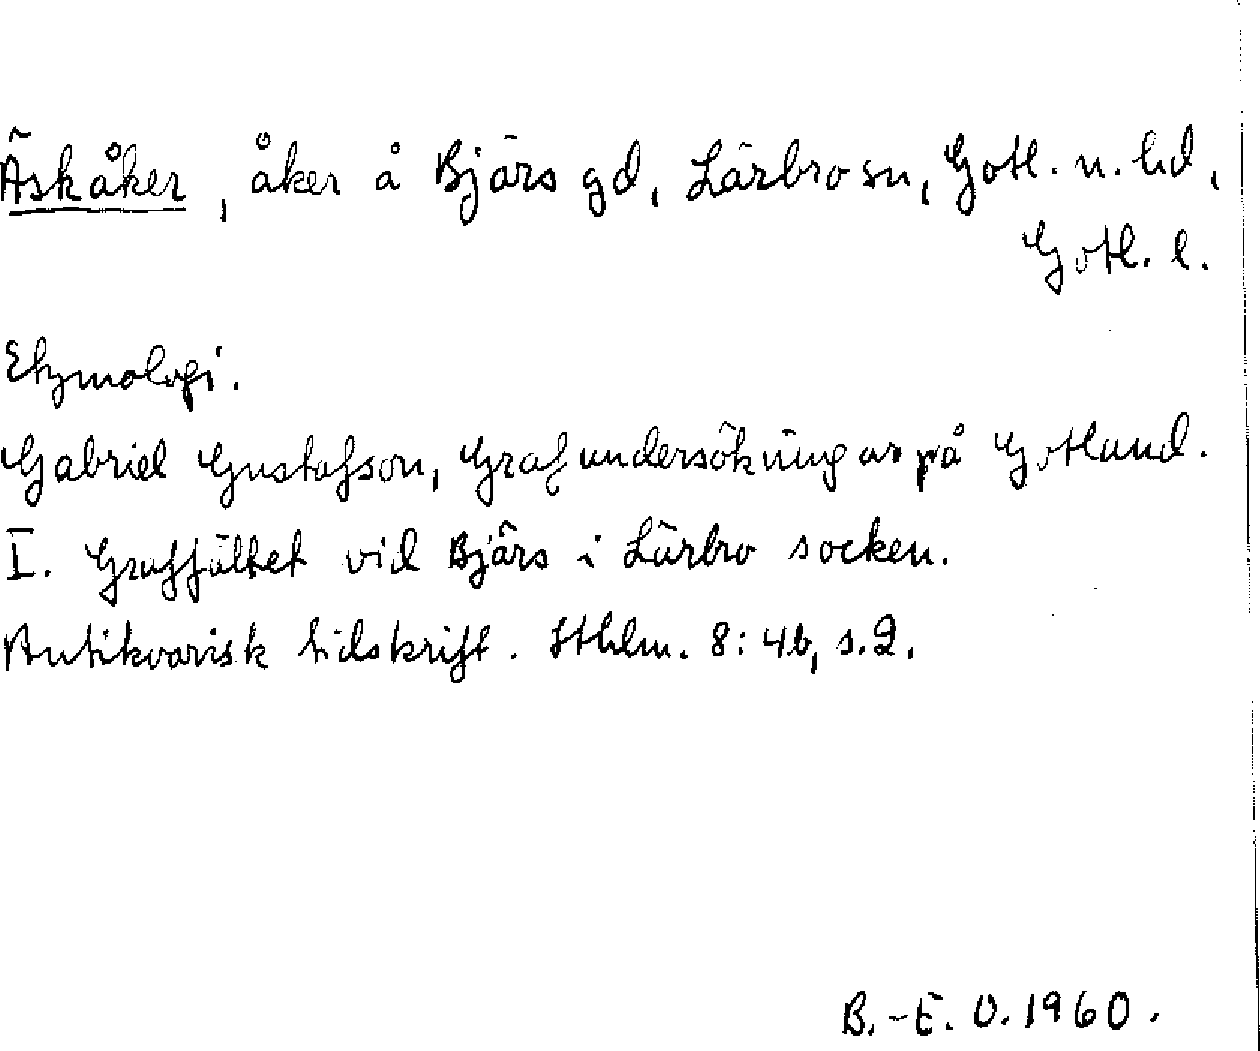 Äskåker, åker å Bjärs gd, Lärbro sn, Gotl. n. hd,
Gotl. l.
Etymologi.
Gabriel Gustafson, Grafundersökningar på Gotland.
I. Graffältet vid Bjärs i Lärbro socken.
Antikvarisk tidskrift. Sthlm. 8:4b, s.2.
B.-E. O. 1960.